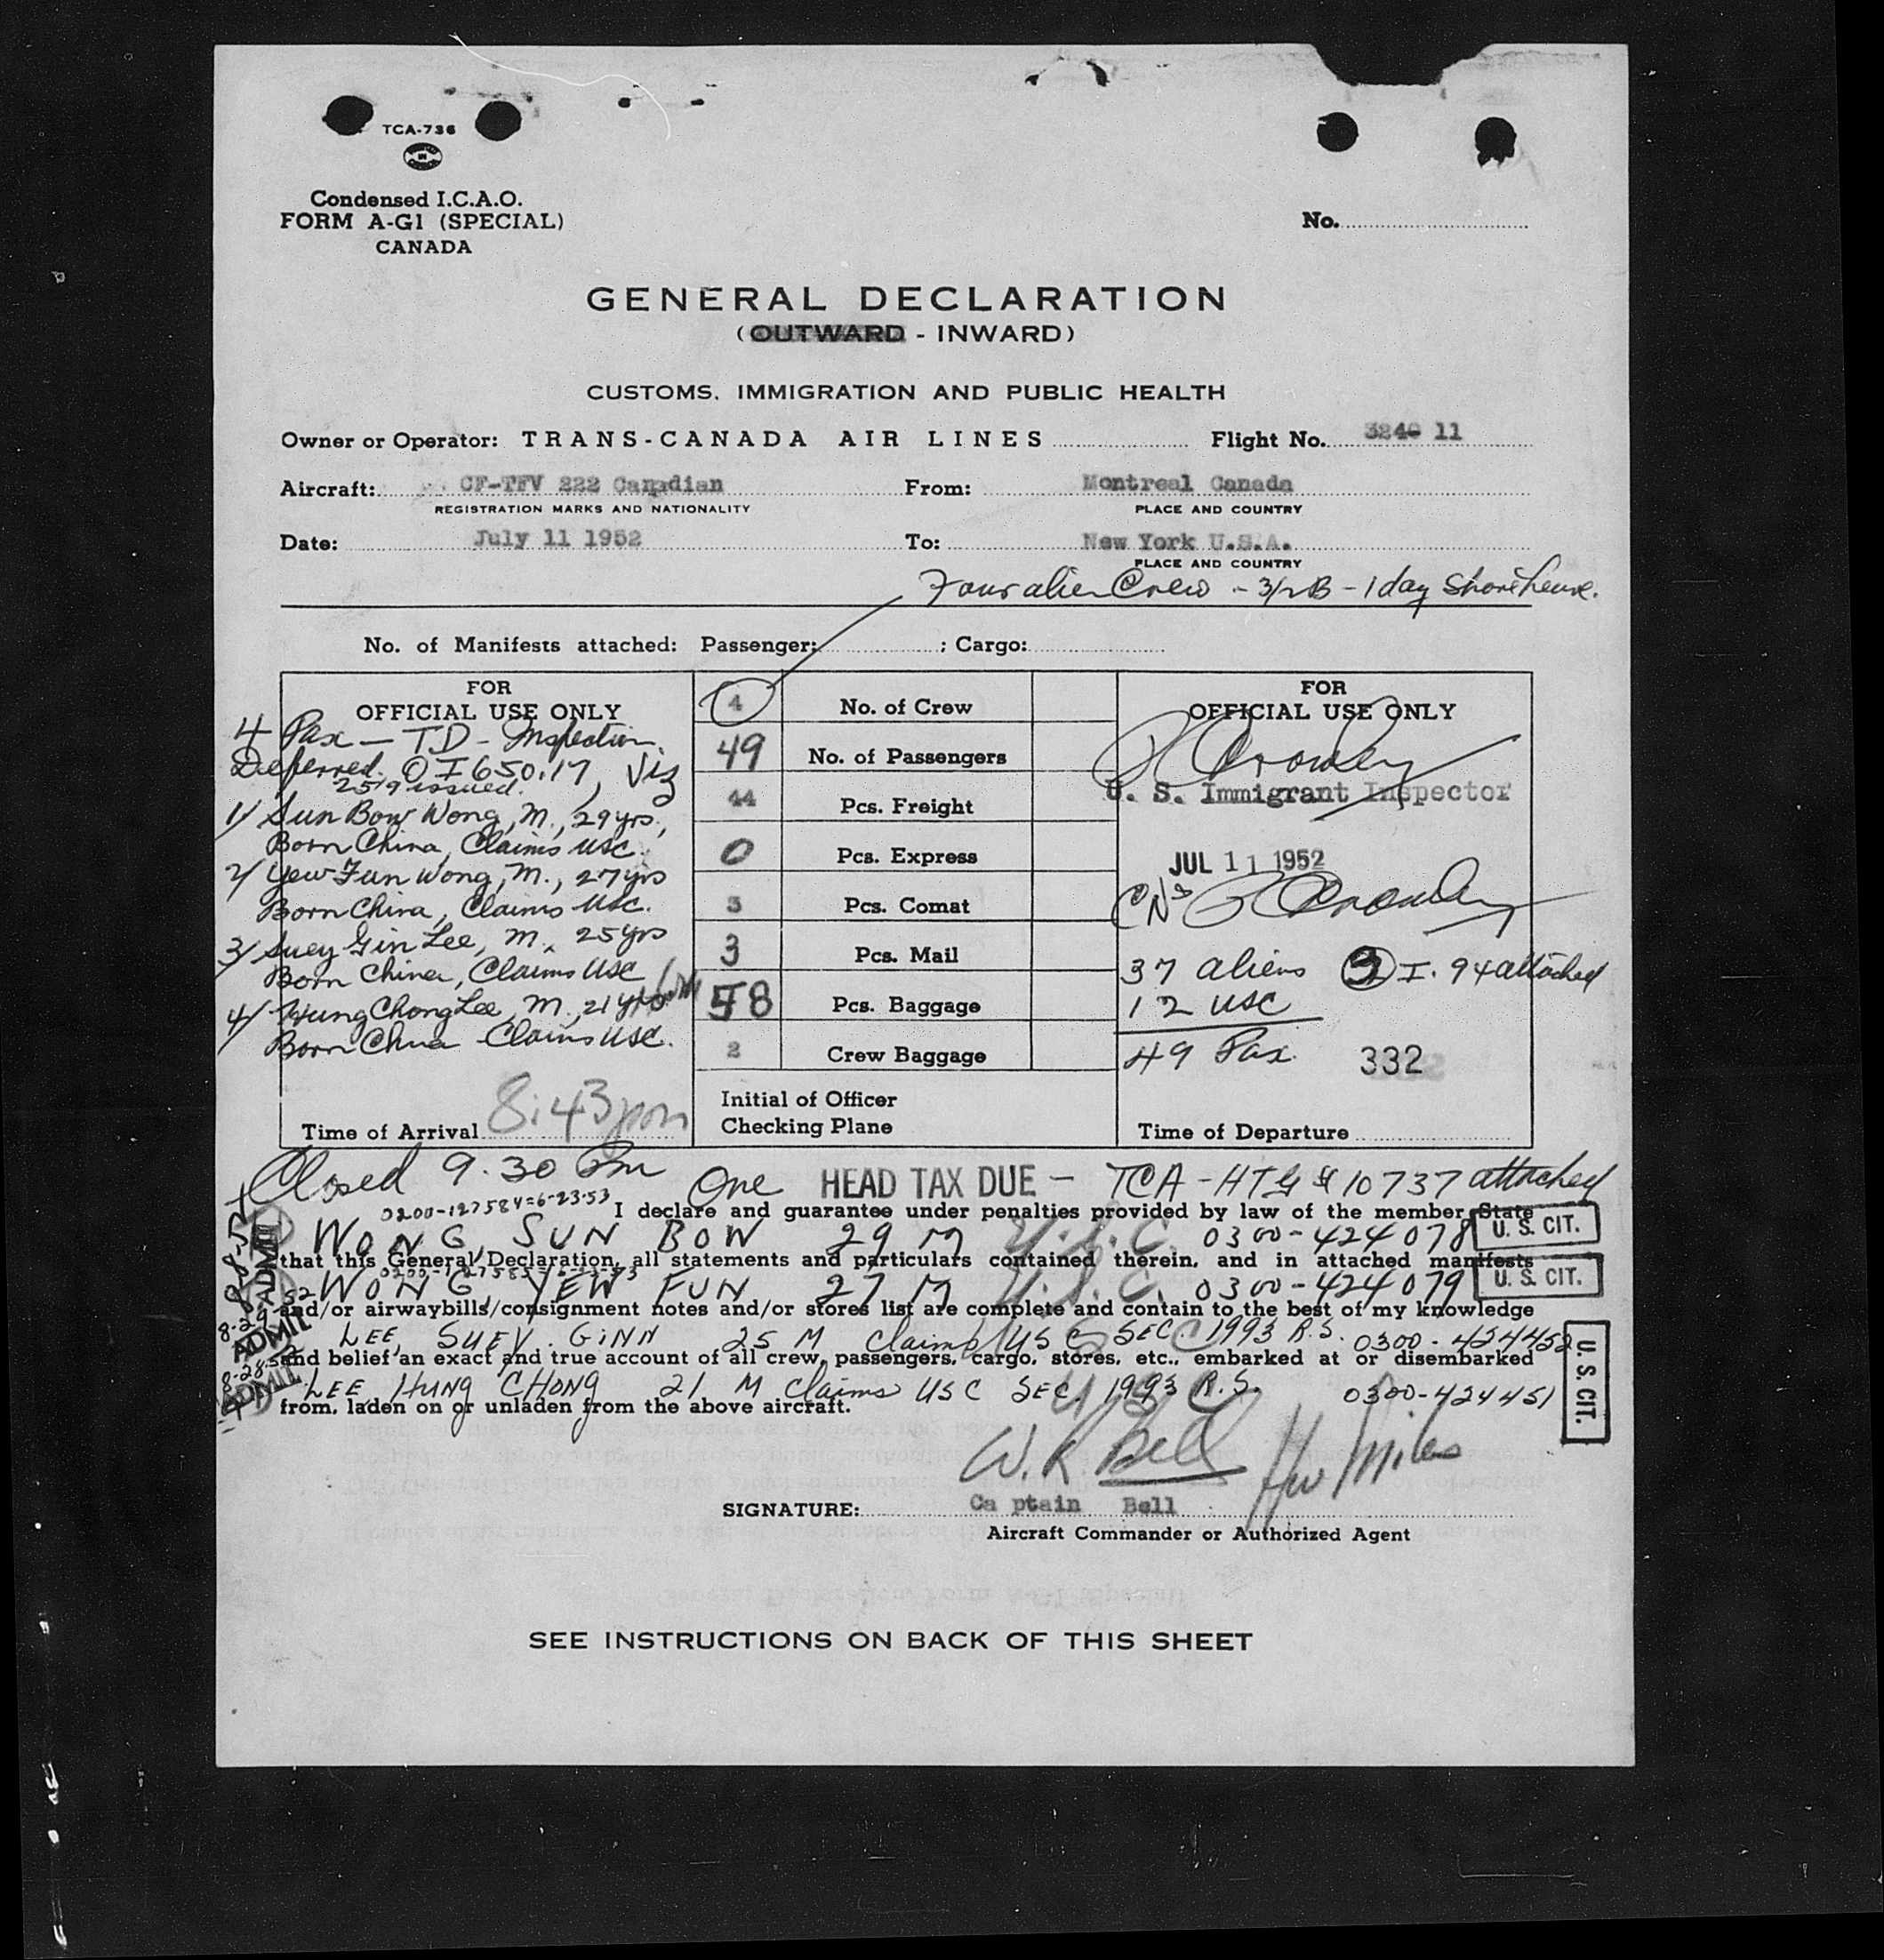 TCA-736
Condensed I.C.A.O.
FORM A-G1 (SPECIAL)
CANADA
No.
GENERAL DECLARATION
(OUTWARD - INWARD)
CUSTOMS, IMMIGRATION AND PUBLIC HEALTH
Owner or Operator: TRANS-CANADA AIR LINES Flight No. 3240 11
Aircraft: CF-TFV 222 Canadian From: Montreal Canada
REGISTRATION MARKS AND NATIONALITY PLACE AND COUNTRY
Date: July 11 1952 To: New York U.S.A.
PLACE AND COUNTRY
Four alien Crew - 3/2B - 1 day Shore
No. of Manifests attached: Passenger: ; Cargo:
FOR
OFFICIAL USE ONLY
4 Pax - TD - Inspection
Deferred. OI 650.17, Viz
259 issued.
1/ Sun Bow Wong, M., 29 yrs.,
Born China, Claims USC.
2/ Yew Fun Wong, M., 27 yrs
Born China, Claims USC.
3/ Suey Gin Lee, M., 25 yrs
Born China, Claims USC
4/ Hung Chong Lee, M., 21 yrs
Born China Claims USC.
Time of Arrival 8:43 pm
4 No. of Crew
49 No. of Passengers
44 Pcs. Freight
0 Pcs. Express
3 Pcs. Comat
3 Pcs. Mail
58 Pcs. Baggage
2 Crew Baggage
Initial of Officer
Checking Plane
FOR
OFFICIAL USE ONLY
Crowley
U. S. Immigrant Inspector
JUL 11 1952
Crowley
37 aliens 3 I. 94 attached
12 USC
49 Pax. 332
Time of Departure
Closed 9.30 Pm One HEAD TAX DUE - TCA - HTG # 10737 attached
0200-127584=6-23-53
I declare and guarantee under penalties provided by law of the member State
WONG, SUN BOW 29 M U.S.C. 0300-424078 U. S. CIT.
that this General Declaration, all statements and particulars contained therein, and in attached manifests
WONG, YEW FUN 27 M U.S.C. 0300-424079 U. S. CIT.
and/or airwaybills/consignment notes and/or stores list are complete and contain to the best of my knowledge
LEE, SUEY GINN 25 M Claims USC SEC. 1993 R.S. 0300-424452
and belief an exact and true account of all crew, passengers, cargo, stores, etc., embarked at or disembarked
LEE HUNG CHONG 21 M Claims USC SEC. 1993 R.S. 0300-424451
from, laden on or unladen from the above aircraft.
U. S. CIT.
ADMIT
ADMIT
ADMIT
W. R. Bell HW Miles
SIGNATURE: Ca ptain Bell
Aircraft Commander or Authorized Agent
SEE INSTRUCTIONS ON BACK OF THIS SHEET